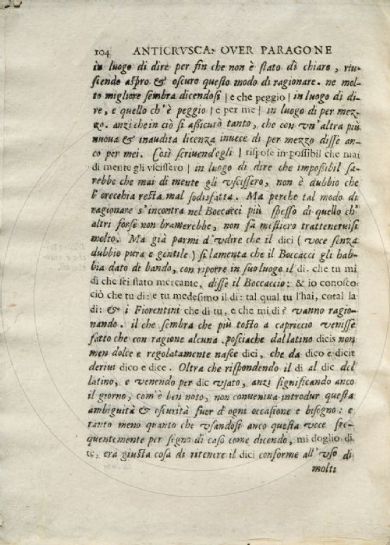 104 ANTICRVSCA: OVER PARAGONE
in luogo di dire per fin che non è stato di chiaro, riu-
sciendo aspro & oscuro questo modo di ragionare. ne mol-
to migliore sembra dicendosi | e che peggio | in luogo di di-
re, e quello ch'è peggio | e per me | in luogo di per mez-
zo. anzi che in ciò si assicurò tanto, che con vn'altra più
nuoua & inaudita licenza inuece di per mezzo disse an-
co per mei. Così scriuendogli | rispose impossibil che mai
di mente gli vscissero | in luogo di dire che impossibil sa-
rebbe che mai di mente gli vscissero, non è dubbio che
l'orecchia resta mal sodisfatta. Ma perche tal modo di
ragionare s'incontra nel Boccacci più spesso di quello ch'
altri forse non bramerebbe, non fà mestiero trattenersi
molto. Ma già parmi d'vdire che il dici (voce senza
dubbio pura e gentile) si lamenta che il Boccacci gli hab-
bia dato de bando, con riporre in suo luogo il di. che tu mi
di che sei stato mercante, disse il Boccaccio: & io conosco
ciò che tu di: e tu medesimo il di: tal qual tu l'hai, cotal la
di: & i Fiorentini che di tu, e che mi di? vanno ragio-
nando. il che sembra che più tosto a capriccio venisse
fatto che con ragione alcuna. posciache dal latino dicis non
men dolce e regolatamente nasce dici, che da dico e dicit
deriui dico e dice. Oltra che rispondendo il di al dic del
latino, e venendo per dic vsato, anzi significando anco
il giorno, com'è ben noto, non conueniua introdur questa
ambiguità & oscurità fuor d'ogni occasione e bisogno: e
tanto meno quanto che vsandosi anco questa voce fre-
quentemente per segno di caso come dicendo, mi doglio di
te, era giusta cosa di ritenere il dici conforme all'vso di
molti